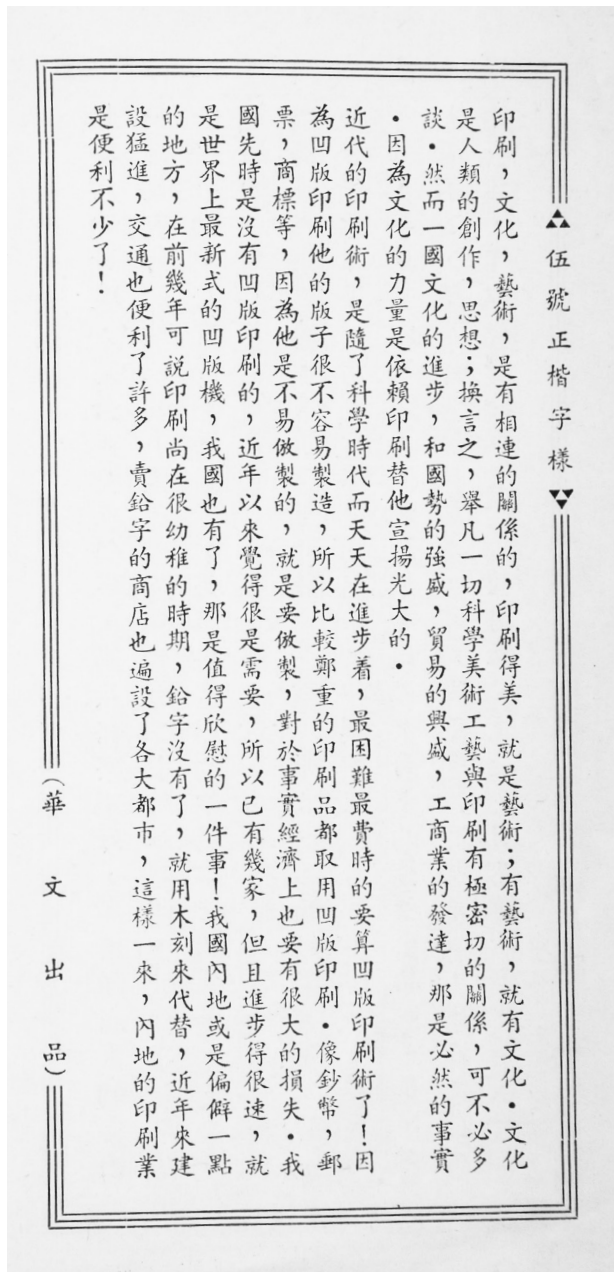 伍號正楷字樣
印刷，文化，藝術，是有相連的關係的，印刷得美，就是藝術；有藝術，就有文化・文化
是人類的創作，思想；換言之，舉凡一切科學美術工藝與印刷有極密切的關係，可不必多
談・然而一國文化的進步，和國勢的強盛，貿易的興盛，工商業的發達，那是必然的事實
・因為文化的力量是依賴印刷替他宣揚光大的・
近代的印刷術，是隨了科學時代而天天在進步着，最困難最費時的要算凹版印刷術了！因
為凹版印刷他的版子很不容易製造，所以比較鄭重的印刷品都取用凹版印刷・像鈔幣，郵
票，商標等，因為他是不易倣製的，就是要倣製，對於事實經濟上也要有很大的損失・我
國先時是沒有凹版印刷的，近年以來覺得很是需要，所以已有幾家，但且進步得很速，就
是世界上最新式的凹版機，我國也有了，那是值得欣慰的一件事！我國內地或是偏僻一點
的地方，在前幾年可說印刷尚在很幼稚的時期，鉛字沒有了，就用木刻來代替，近年來建
設猛進，交通也便利了許多，賣鉛字的商店也遍設了各大都市，這樣一來，內地的印刷業
是便利不少了！
（華文出品）